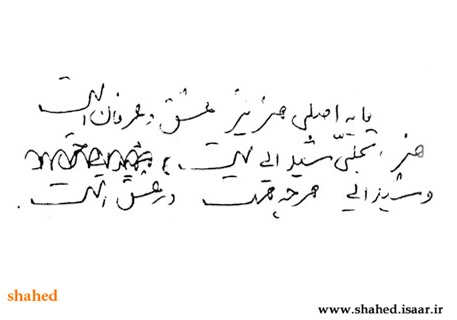 پایه اصلی هنر نیز عشق و عرفان است
هنر تجلّی شیدایی است
و شیدایی هر چه هست در عشق است.
shahed
www.shahed.isaar.ir